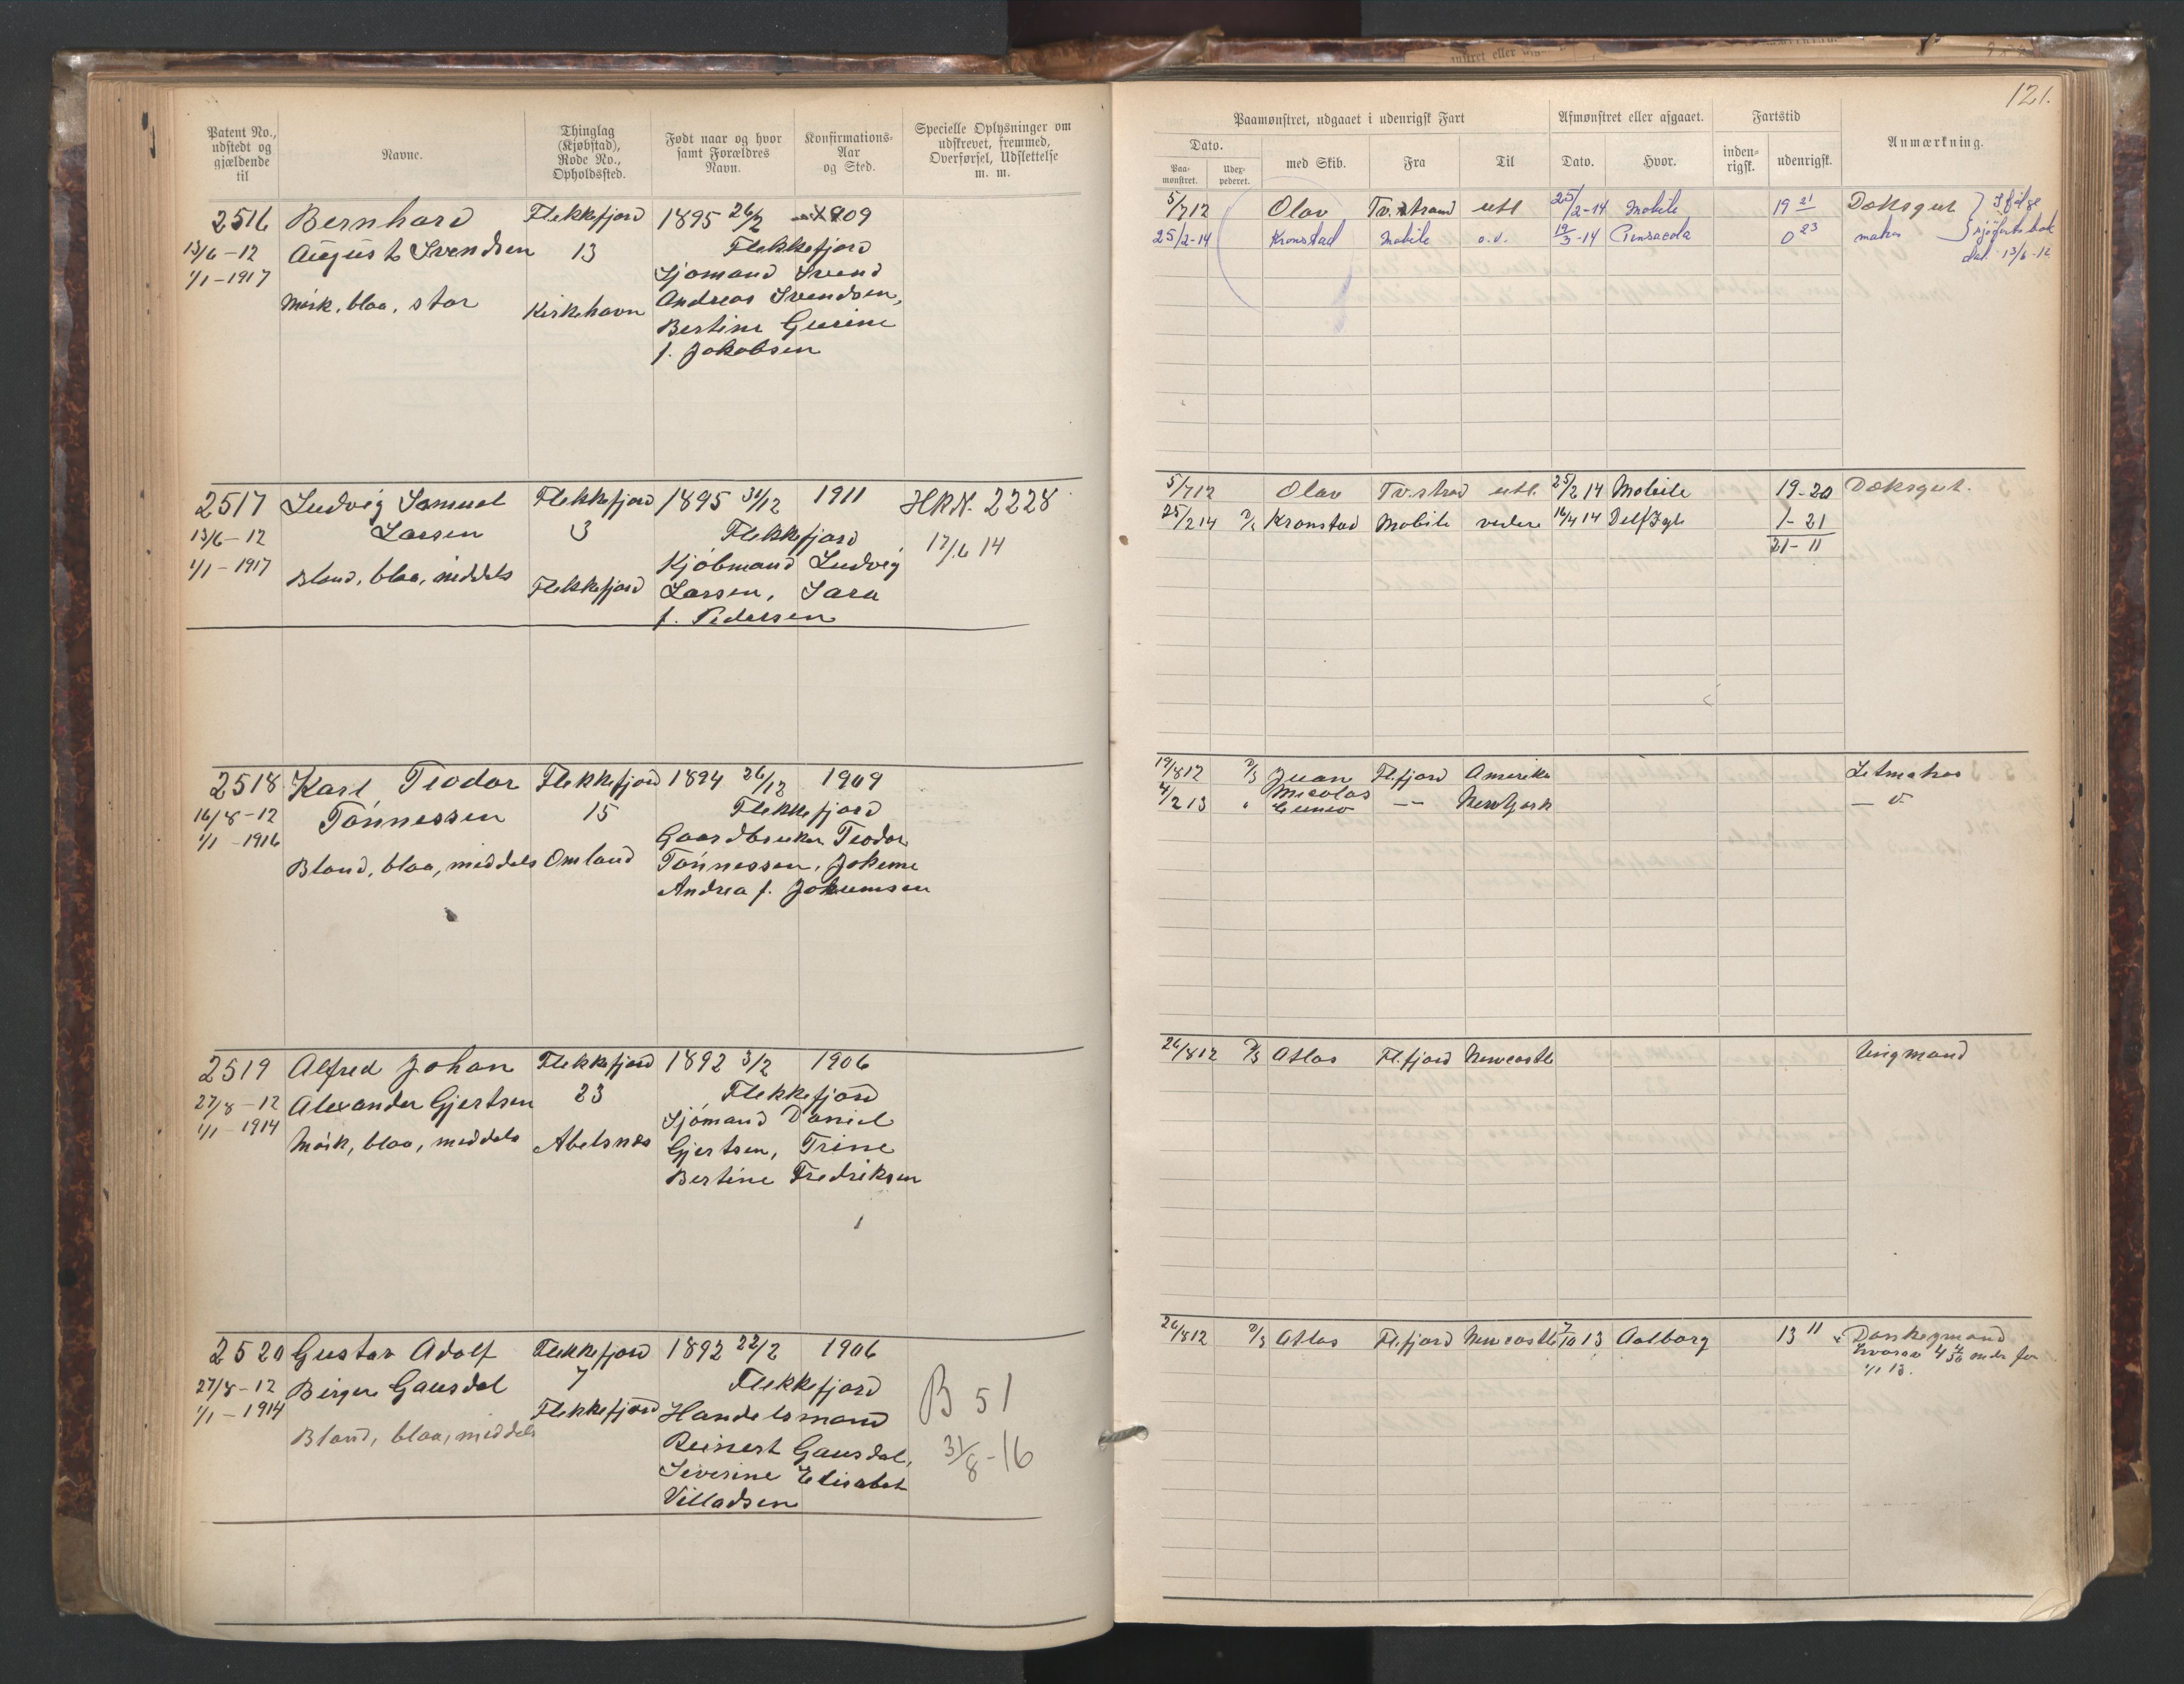 Patent No., udstedt og gjældende til
Navne.
Thinglag (Kjøbstad), Rode No., Opholdssted.
Født naar og hvor samt Forældres Navn.
Konfirmations-Aar og Sted.
Specielle Oplysninger om udskrevet, fremmed, Overførsel, Udslettelse m. m.
2516 Bernhard Flekkefjord 1895 26/2 1909
13/6-12 August Svendsen 13 Flekkefjord
1/1-1917 Sjømand Svend
Mørk, blaa, stor Kirkehavn Andreas Svendsen,
Bertine Gurine
f. Jakobsen
2517 Ludvig Samuel Flekkefjord 1895 31/12 1911 HRN. 2228
13/6-12 Larsen 3 Flekkefjord 17/6 14
1/1-1917 Kjøbmand Ludvig
Blond, blaa, middels Flekkefjord Larsen, Sara
f. Pedersen
2518 Karl Teodor Flekkefjord 1894 26/12 1909
16/8-12 Tønnessen 15 Flekkefjord
1/1-1916 Gaardbruker Teodor
Blond, blaa, middels Omland Tønnessen, Jokeme
Andrea f. Jokumsen
2519 Alfred Johan Flekkefjord 1892 3/2 1906
27/8-12 Alexander Gjertsen 23 Flekkefjord
1/1-1914 Sjømand Daniel
Mørk, blaa, middels Abelsnæs Gjertsen, Trine
Bertine Fredriksen
2520 Gustav Adolf Flekkefjord 1892 22/2 1906
27/8-12 Birger Gausdal 7 Flekkefjord B 51
1/1-1914 Flekkefjord Handelsmand
Blond, blaa, middels Reinert Gausdal, 31/8-16
Severine Elisabet
Villadsen
121.
Paamønstret, udgaaet i udenrigsk Fart
Afmønstret eller afgaaet.
Fartstid
Anmærkning.
Dato.
Paamønstret. Udexpederet. med Skib. Fra Til Dato. Hvor. indenrigsk. udenrigsk.
5/7 12 Olav Tv.strand utl 25/2-14 Mobile 19 21 Dæksgut } Ifølge
25/2-14 Kronstad Mobile o.v. 19/3-14 Pensacola 0 23 matros } sjøfartsbok
dat. 13/6-12
5/7 12 Olav Tv.strand utl. 25/2 14 Mobile 19-20 Dæksgut.
25/2 14 Kronstad Mobile videre 16/4 14 1-21
21-11
19/8 12 Juan Fl.fjord Amerika Letmatros
4/2 13 -- New York - v.
26/8 12 Atlas Fl.fjord Newcastle Ungmand
26/8 12 Atlas Fl.fjord Newcastle 7/10 13 Aalborg 13 11
hvorav 4 mdr før
1/1 13.